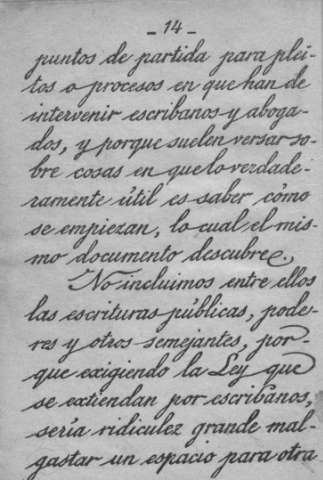 - 14 -
puntos de partida para plei-
tos o procesos en que han de
intervenir escribanos y aboga-
dos, y porque suelen versar so-
bre cosas en que lo verdade-
ramente útil es saber cómo
se empiezan, lo cual el mis-
mo documento descubre.
No incluimos entre ellos
las escrituras públicas, pode-
res y otros semejantes, por-
que exigiendo la Ley que
se extiendan por escribanos,
sería ridiculez grande mal-
gastar un espacio para otra